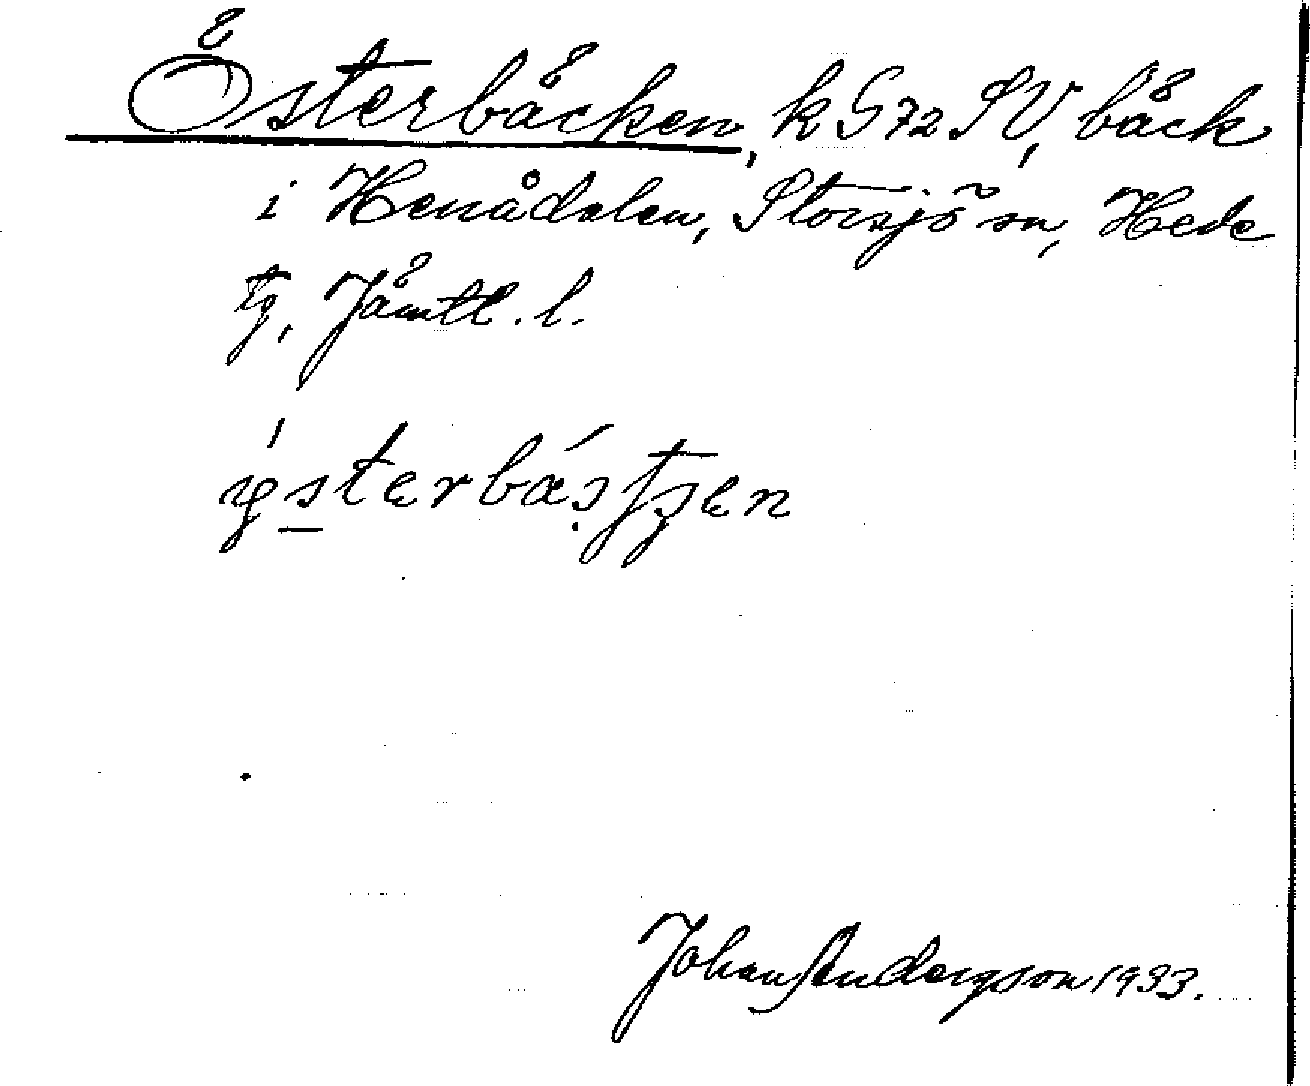 Österbäcken, k G 72 SV, bäck
i Henådalen, Storsjö sn, Hede
tg, Jämtl. l.
Johan Anderson 1933.